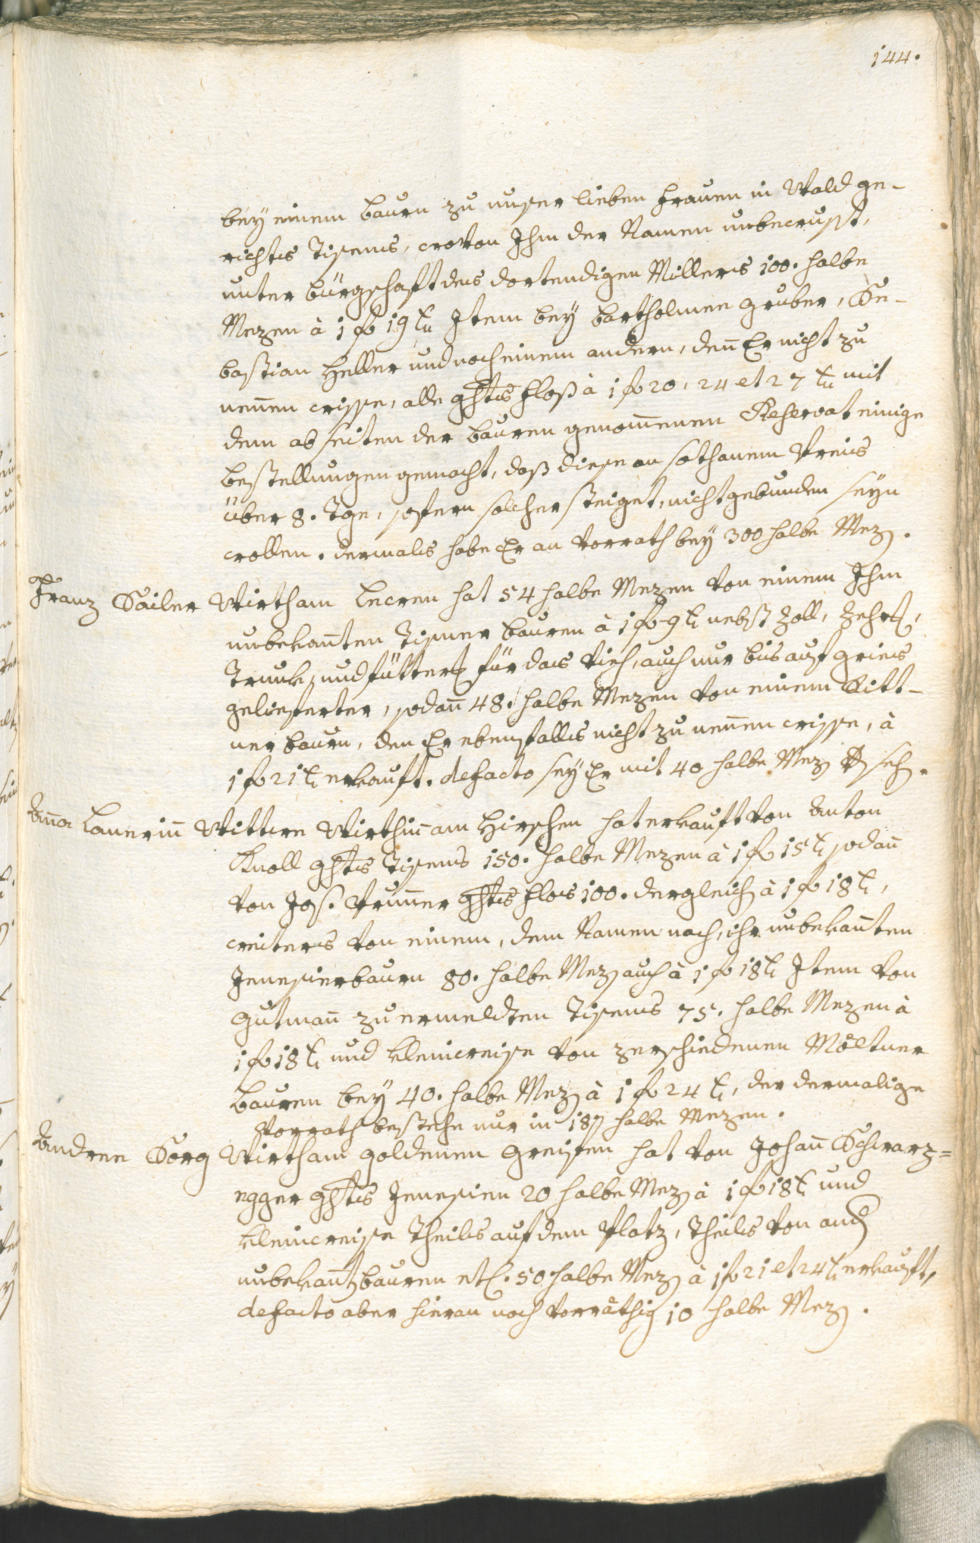 144.
bey einem baurn zu unser lieben frauen in Wald ge-
richts Tisens, wovon Ihm der Namen unbewusst,
unter bürgschaft des dortendigen Müllers 100. halbe
Mezen à 1 f 19 kr Item bey Bartholmee Gruber, Se-
bastian Heller und noch einem andern, den Er nicht zu
nennen wisse, alle ghts Floß à 1 f 20, 24 et 27 kr mit
dem ab seiten der bauren genommenen Reservat einige
bestellungen gemacht, daß diese an sothanem Preis
über 8. Tge, sofern solcher steiget, nicht gebunden seyn
wollen. dermals habe Er an Vorrath bey 300 halbe Mez.
Franz Sailer Wirth am Lewen hat 54 halbe Mezen von einem Ihm
unbekanten Tisner bauren à 1 f 9 kr nebst Zoll, Zehrg,
Trunk, und fütterg für das Vieh, auch nur bis auf Gries
gelieferter, sodan 48. halbe Mezen von einem Ritt-
ner baurn, den Er ebenfalls nicht zu nennen wisse, à
1 f 21 kr erkauft. de facto sey Er mit 40 halbe Mez
Anna Lanerin Wittwe Wirthin am Hirschen hat erkauft von Anton
Knoll ghts Tisens 150. halbe Mezen à 1 f 15 kr sodan
von Jos. Prunner ghts Flos 100. dergleich à 1 f 18 kr,
weiters von einem, dem Namen nach, ihr unbekanten
Jenesier baurn 80. halbe Mez auch à 1 f 18 kr Item von
Gutman zu ermeldten Tisens 75. halbe Mezen à
1 f 18 kr und kleinweise von zerschiedenen Möltner
bauren bey 40. halbe Mez à 1 f 24 kr, der dermalige
Vorrath bestehe nur in 18 halbe Mezen.
Andree Sorg Wirth am goldenen Greifen hat von Johan Schwarz=
egger ghts Jenesien 20 halbe Mez à 1 f 18 kr und
kleinweise Theils auf dem Platz, Theils von and
unbekant bauren etl. 50 halbe Mez à 1 f 21 et 24 kr erkauft,
de facto aber hieran noch vorräthig 10 halbe Mez.